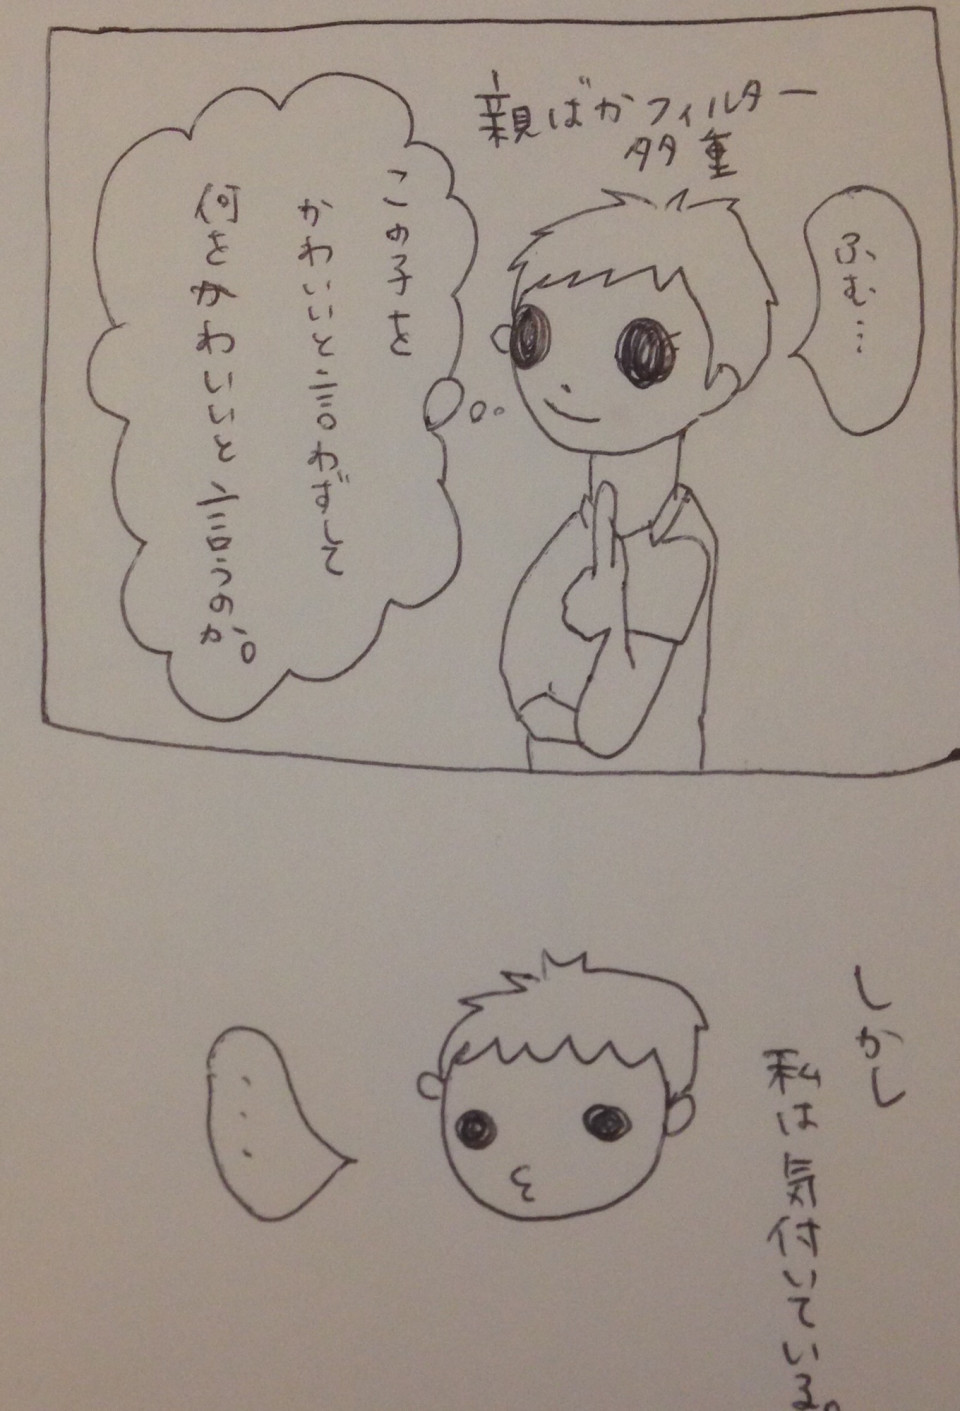 親ばかフィルター
多重
ふむ…
この子を
かわいいと言わずして
何をかわいいと言うのか。
しかし
私は気付いている。
…